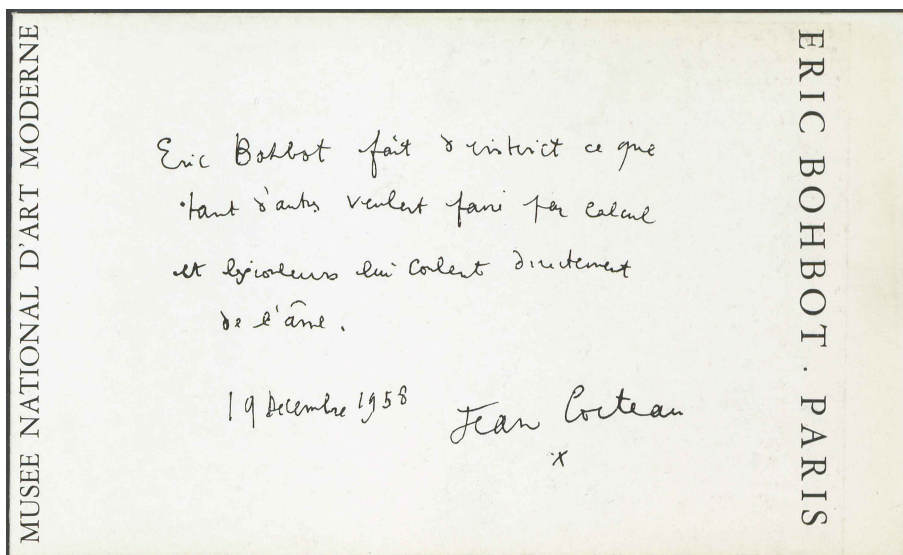 MUSEE NATIONAL D'ART MODERNE
Eric Bohbot fait d'instinct ce que
tant d'autres veulent faire par calcul
et les couleurs lui coulent directement
de l'âme.
19 Decembre 1958
Jean Cocteau
ERIC BOHBOT. PARIS